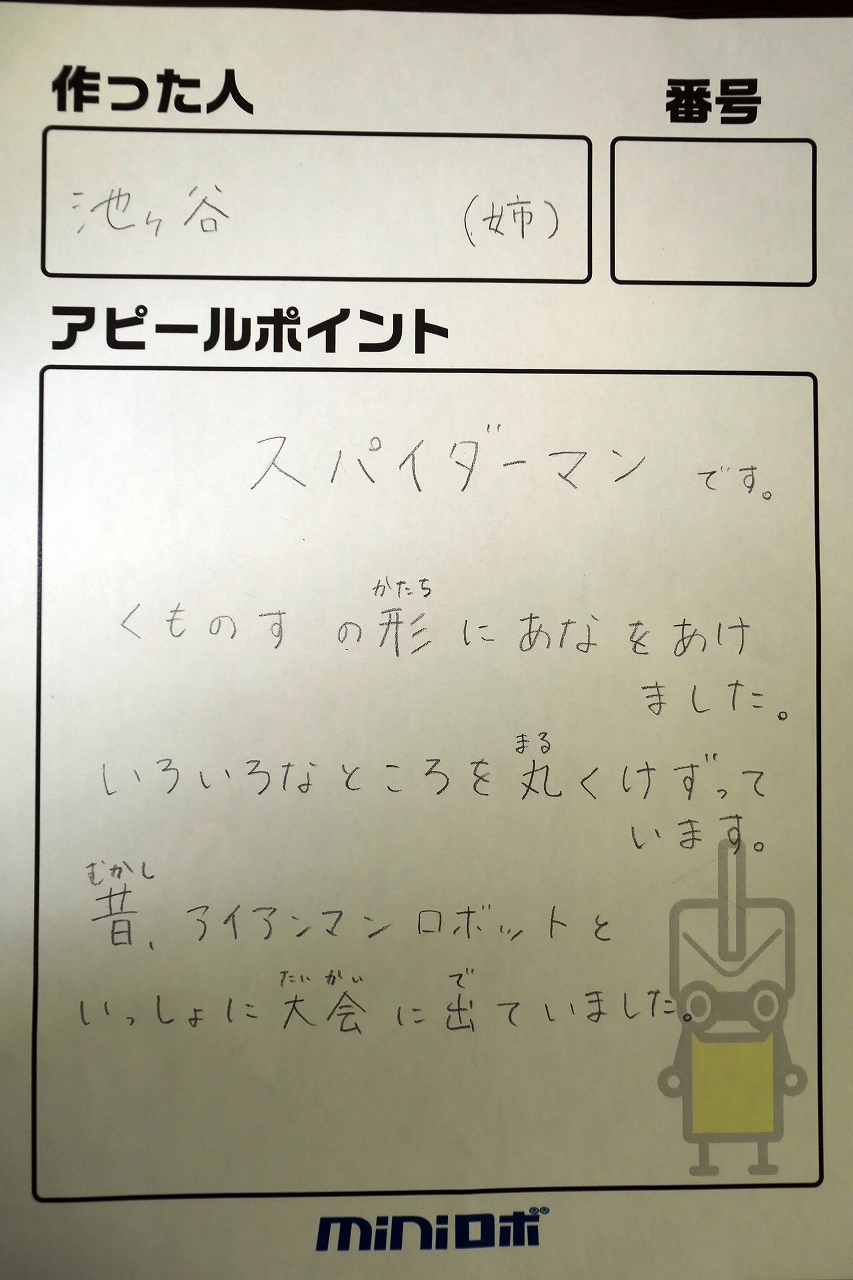 作った人
番号
池ヶ谷 (姉)
アピールポイント
スパイダーマン です。
かたち
くものす の形 に あな を あけ
ました。
まる
いろいろなところを丸くけずって
います。
むかし
昔、アイアンマンロボットと
たい かい で
いっしょに大会に出ていました。
miniロボ